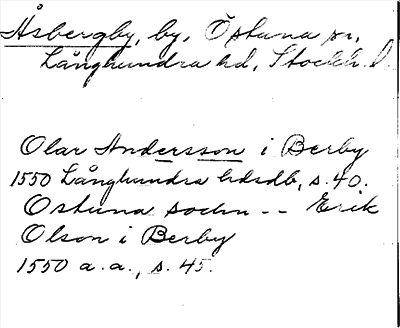 Åsbergby, by, Östuna sn,
Långhundra hd, Stockh. l.
Olar Andersson i Berby
1550 Långhundra hdsdb, s. 40.
Ostuna sochn -- Erik
Olson i Berby
1550 a.a., s. 45.